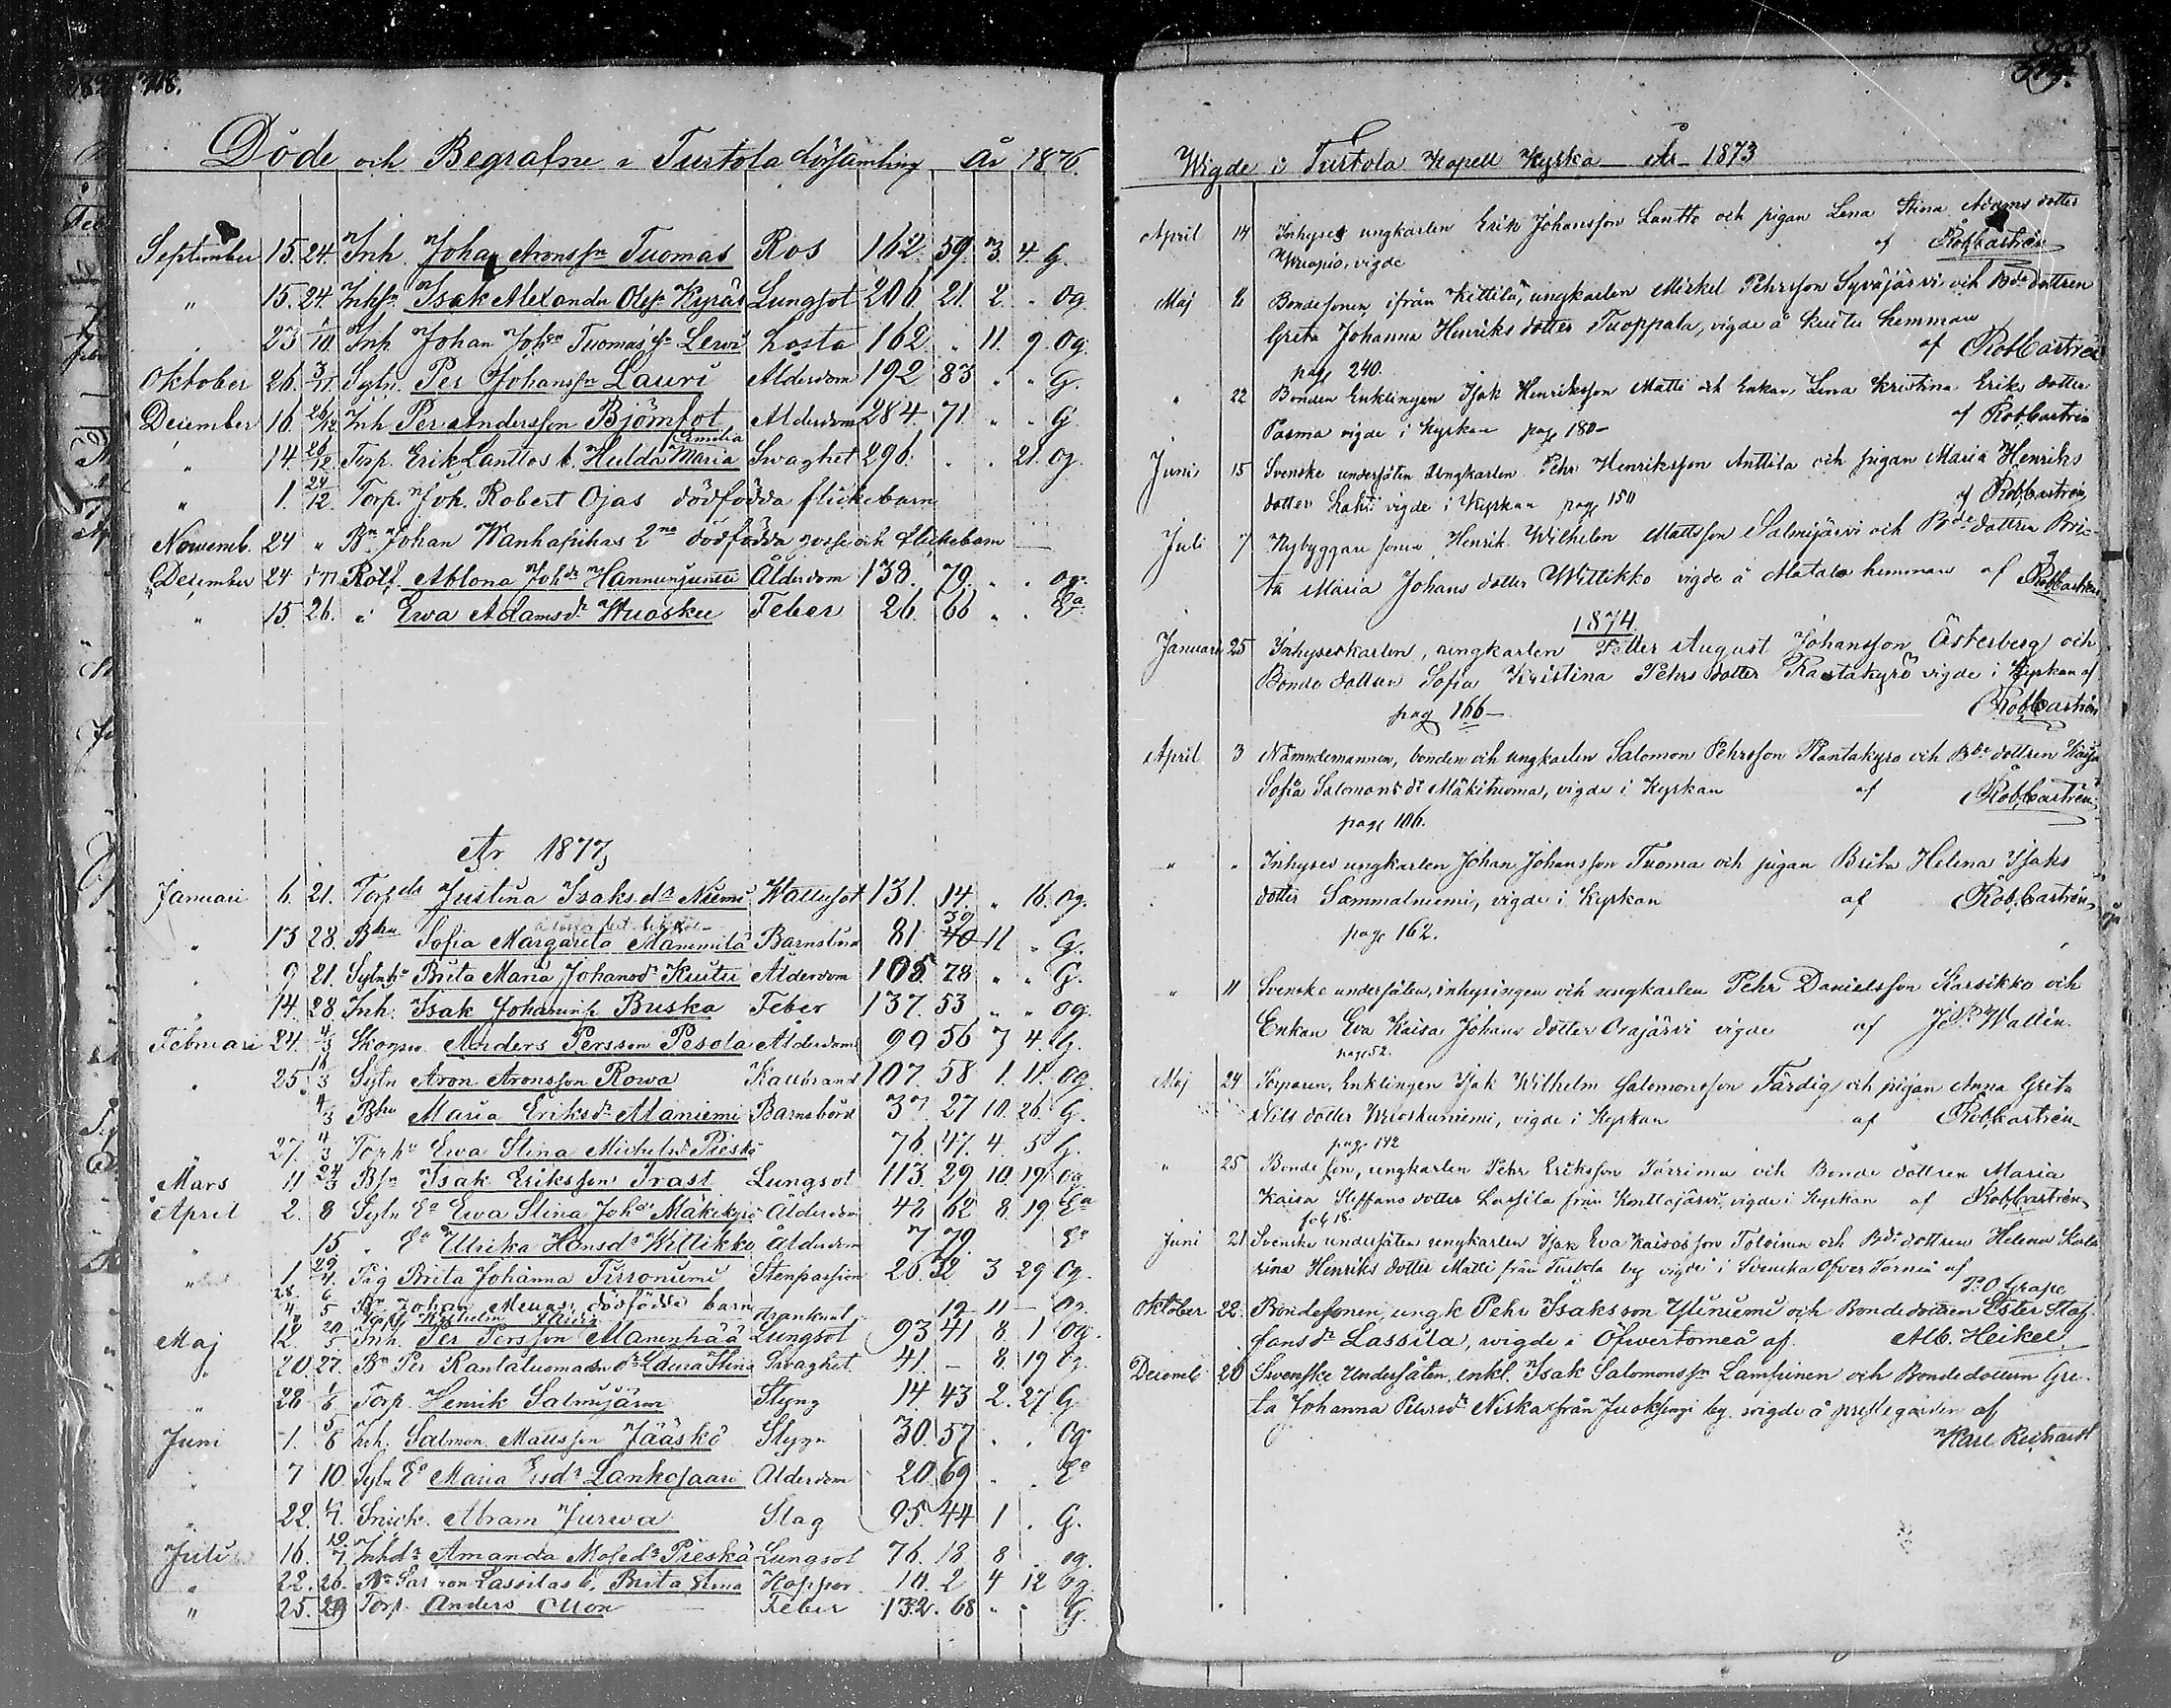 Döde och Begrafne i Turtola församling År 1876.
September 15. 24. Inh. Johan Aronssn Tuomas Ros 162. 59. 3. 4. G.
" 15. 24. Inhsn Isak Alexander Olofs Kyrös Lungsot 206. 21. 2. . Og.
. 23 1/10. Inh. Johan Johsn Tuomas Sn Lewi Losta 162. . 11. 9. Og.
Oktober 26. 3/11. Sytn. Per Johanssn Lauri Ålderdom 192 83 " " G.
December 16. 26/12 Inh Per Andersson Björnfot Ålderdom 284. 71. " . G.
Emilia
" 14. 26/12 Torp. Erik Lanttos b. Hulda Maria Swaghet 296. . . 21. Og.
" 1. 24/12. Torp. Joh. Robert Ojas dödfödda flickebarn
Nowemb. 24 " Bn Johan Wanhapihas 2ne dödfödda gosse och flickebarn
December 24 Rotf. Ablona Johdr Hannunjuntti Ålderdom 138. 79. . . og.
" 15. 26. " Ewa Adamsdr Wuosku Feber 26. 66 " . Ea
År 1877
Januari 6. 21. Torpdr Justina Isaksdr Niemi Wattusot 131. 14. " 16. Og.
" 13 28. Bhu Sofia Margareta Mämmilä Barnsbörd 81. 39 40 11 " G.
. 9 21. Sytnhu Brita Maria Johansdr Kuutu Ålderdom 105. 78 " " G.
" 14. 28. Inh. Isak Johanins Buska Feber 137. 53 " " Og.
Februari 24. 4/3 Anders Persson Pesola Ålderdom 99 56 7 4. G.
. 25. 11/3 Sytn Aron Aronsson Rowa Kallbrand 107. 58 1. 11. Og.
4/3 Bhu Maria Eriksdr Maniemi Barnsbörd 37. 27 10. 26. G.
" 27. 4/3 Torphu Ewa Stina Michelsdr Pieskä 76. 47. 4. 5 G.
Mars 11 24/3 Bsn Isak Eriksson Trast Lungsot 113. 29 10. 19. Og
April 2. 8 Sytn Ea Ewa Stina Johdr Mäkikyrö Ålderdom 48 62 8. 19. Ea
" 15. " Ea Ulrika Hansdr Wittikko Ålderdom 7. 79. Ea
" 1. 29/4. Pig Brita Johanna Tirroniemi Stenpassion 26 32 3 29 Og.
28. 6/5 Bn Johan dödfödde barn
4. Wilhelm Drunknat 19 11 — Og.
Maj 12. 20/5. Inh. Per Persson Manenpää Lungsot 93 41 8. 1 Og.
" 20. 27. Bn Per Rantatuomas dr Stina Swaghet 41. — 8. 19 Og.
" 28 1/6 Torp. Henrik Salmijärvi Styng 14. 43 2. 27 G
Juni 1. 5/6 Inh. Salmon Mattsson Jääskö Styng 30. 57 . . Og
. 7 10. Sytn Ea Maria Ersdr Lankosaari Ålderdom 20. 69 . . Ea
" 22. 1/7. Snick. Abram Jurwa Slag 95. 44 1 . G.
Juli 16. 19/7. Inhdr Amanda Mosedr Pieskä Lungsot 76. 18 8 . og.
" 22. 26. Bn Salmon Lassilas b. Brita Stina Koppor 10. 2 4 12 Og.
" 25. 29 Torp. Anders Ollon Feber 132. 68 " " G.
Wigde i Turtola Kapell Kyrka År 1873
April 14 Inhyses ungkarlen Erik Johansson Lantto och pigan Lena Stina Adams dotter
Wuopio, vigde af RobCastrén
Maj 2 Bondesonen ifrån Kittilä, ungkarlen Mickel Pehrsson Syväjärvi och Bde dottren
Greta Johanna Henriks dotter Tuoppala, vigde å Kuutu hemman
pag 240. af RobCastrén
" 22 Bonden Enklingen Isak Henriksson Matti och Enkan Lena Kristina Eriks dotter
Parma vigde i Kyrkan pag 180– af RobCastrén
Juni 15 Svenske undersåten Ungkarlen Pehr Henriksson Anttila och pigan Maria Henriks
dotter Lahti vigde i Kyrkan pag 150 af RobCastrén
Juli 7 Nybyggare sonen Henrik Wilhelm Mattsson Salmijärvi och Bde dottren Bri-
ta Maria Johans dotter Wittikko vigde å Matala hemman af RobCastrén
1874
Januari 25 Inhyseskarlen, ungkarlen Petter August Johansson Österberg och
Bonde dottren Sofia Kristina Pehrs dotter Rautakyrö vigde i Kyrkan af
pag 166– RobCastrén
April 3 Nämndemannen, bonden och ungkarlen Salomon Pehrsson Rantakyrö och Bde dottren Kaisa
Sofia Salomons dr Mäkituoma, vigde i Kyrkan af RobCastrén
page 106.
" " Inhyses ungkarlen Johan Johansson Tuoma och pigan Brita Helena Isaks
dotter Sammalniemi, vigde i Kyrkan af RobCastrén
page 162.
" 11 Svenske undersåten, inhysingen och ungkarlen Pehr Danielsson Karsikko och
Enkan Eva Kaisa Johans dotter Orajärvi vigde af Wallin.
page 52.
Maj 24 Torparen, Enklingen Isak Wilhelm Salomonsson Färdig och pigan Anna Greta
Nils dotter Wuoskuniemi, vigde i Kyrkan af RobCastrén
page 142
" 25 Bonde son, ungkarlen Pehr Eriksson Törrima och Bonde dottren Maria
Kaisa Steffans dotter Lassila från Konttajärvi, vigde i Kyrkan af RobCastrén
fol 18.
Juni 21 Svenske undersåten ungkarlen Isak Eva Kaisas son Tolvinen och Bde dottren Helena Kata
rina Henriks dotter Matti från Turtola by vigde i Svenska Öfver Torneå af
P. O Grape
Oktober 22. Bondesonen, ungk Pehr Isaksson Yliniemi och Bondedottren Ester Staf
fansdr Lassila, wigde i Öfwertorneå af Alb. Heikel
Decemb 26 Swenske Undersåten, enkl. Isak Salomonssn Lampinen och Bondedottern Gre-
ta Johanna Petersdr Niska från Juoksingi by. wigde å prestegården af
Karl Reinhardt